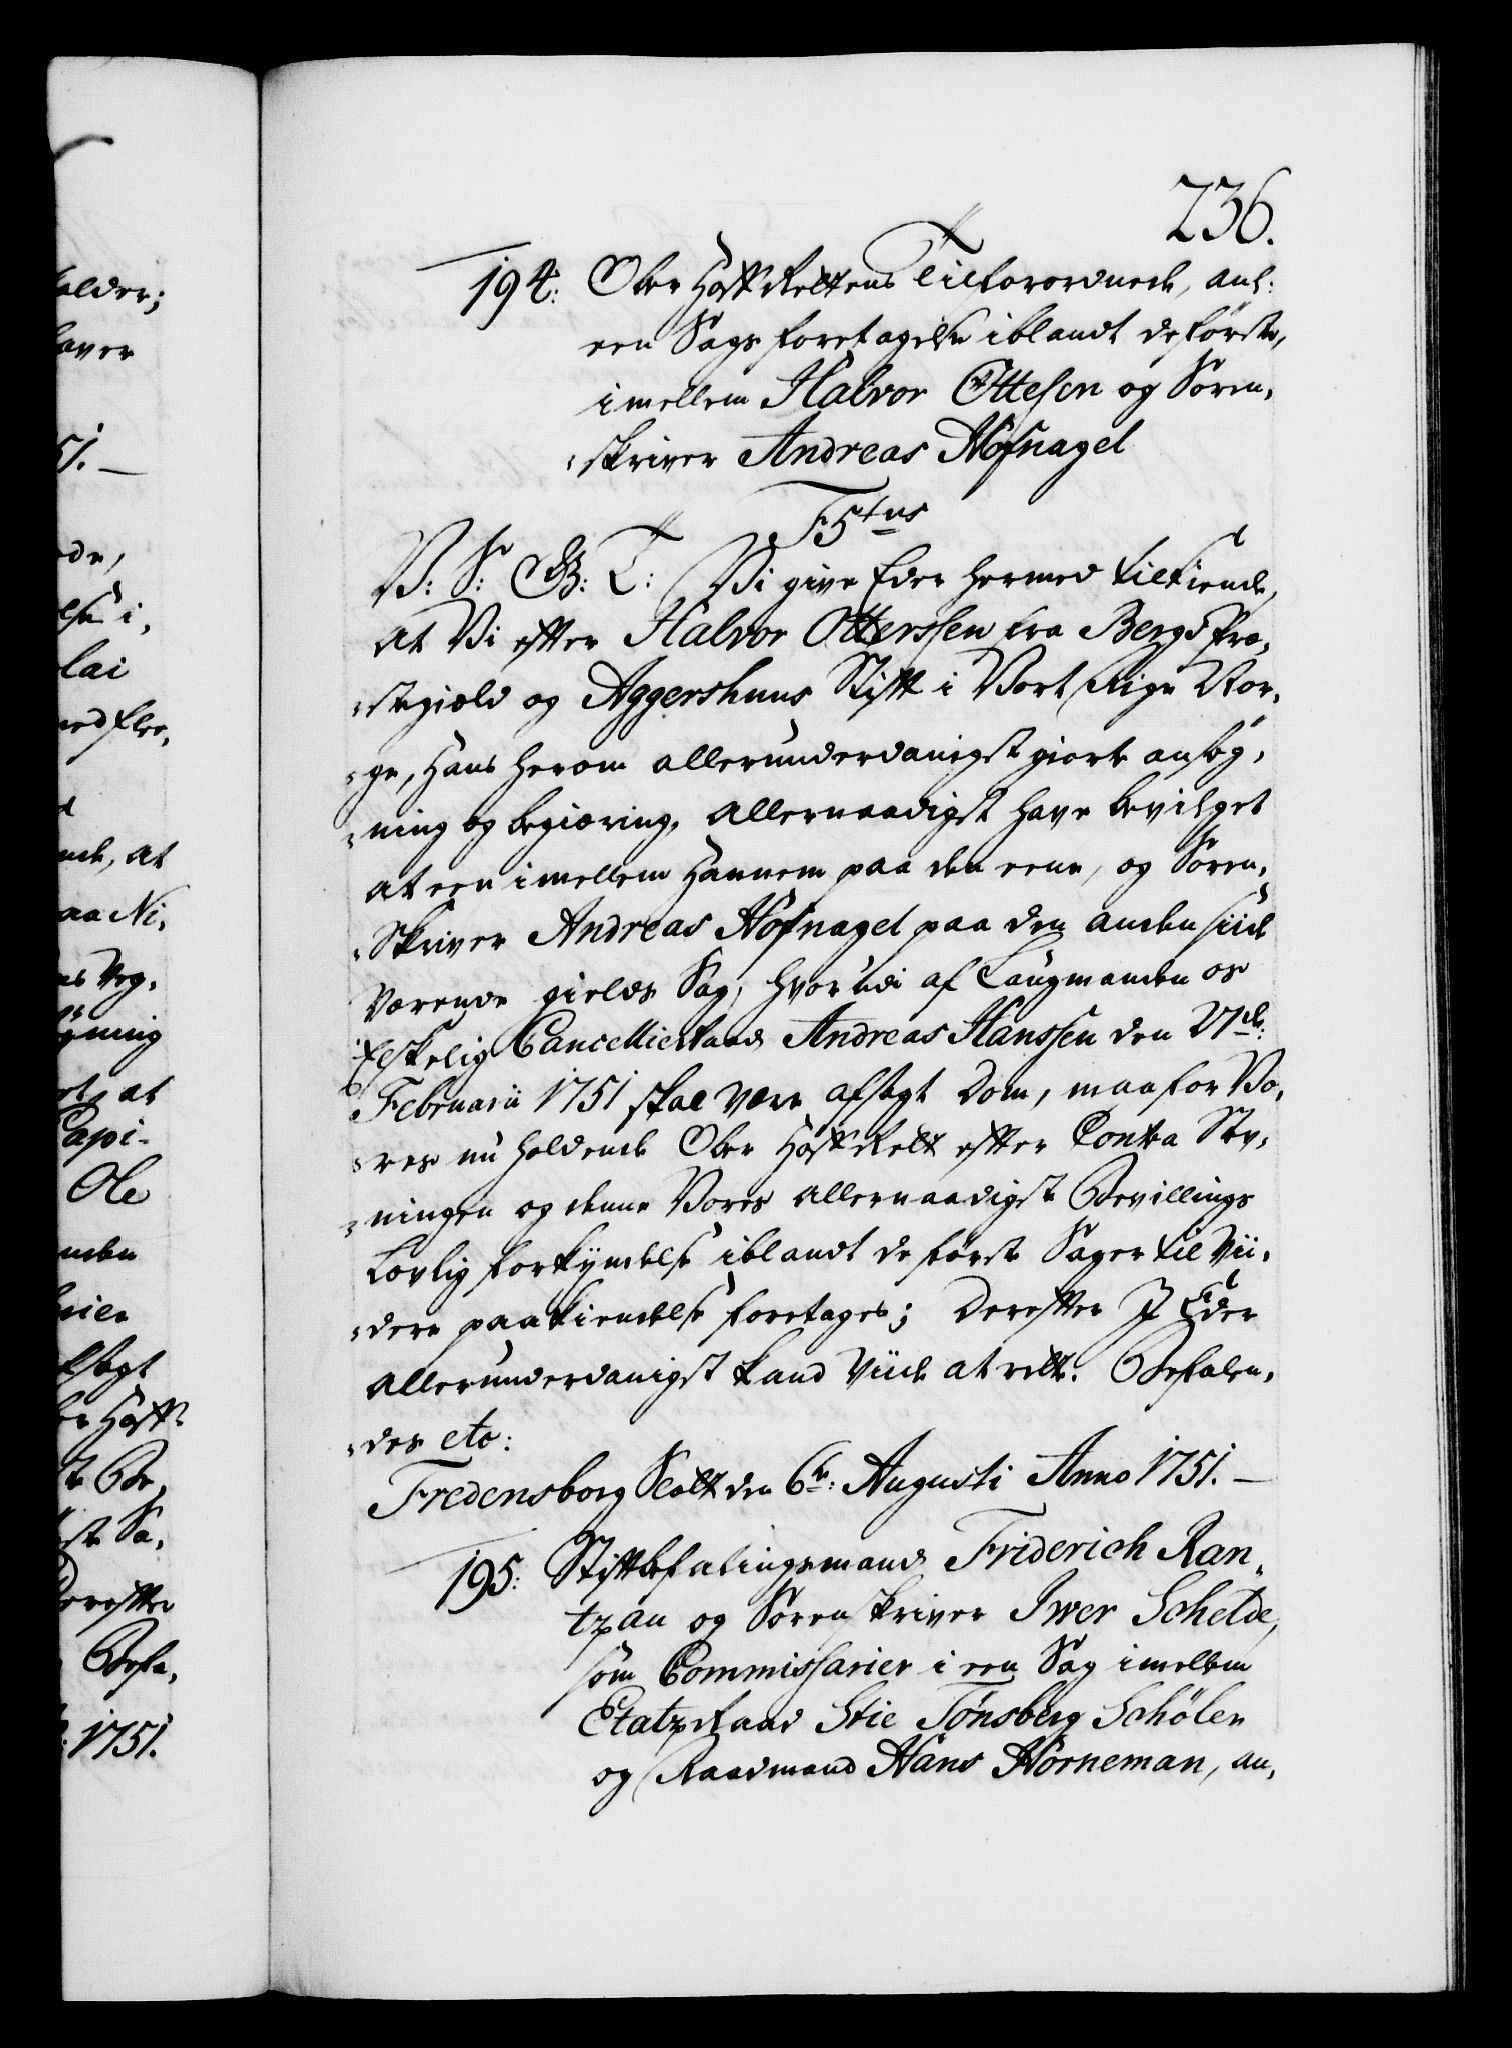 236.
194: Ober Hoff Rettens Tilforordnede, anl:
een Sags foretagelse iblandt de første,
imellem Halvor Ottesen og Soren,
skriver Andreas Hofnagel
F5tus
V: S: G: T: Vi give Eder hermed tilkiende,
at Vi efter Halvor Otterssen fra Bergs Præ,
stegield og Aggershuus Stift i Vort Rige Nor,
ge, Hans herom allerunderdanigst giorte ansøg,
ning og begiæring, allernaadigst have bevilget
at een imellem Hannem paa den eene, og Soren,
Skriver Andreas Hofnagel paa den anden siide
Værende gields Sag, hvorudi af Laugmanden os
Elskelig Cancellie Raad Andreas Hanssen den 27de:
Februarii 1751 skal være afsagt Dom, maa for Vo,
res nu holdende Ober Hoff Rett efter Contra Stev,
ningen og denne Vores allernaadigste Bevillings
Lovlig forkyndelse iblandt de første Sager til Vii,
dere paakiendelse foretages; Derefter I Eder
allerunderdanigst kand Viide at rette. Befalen,
des etc:
Fredensborg Slott den 6te: Augusti Anno 1751. —
195: Stiftbefalingsmand Friderich Ran,
tzau og Sorenskriver Iwer Schelde,
som Commissarier i een Sag imellem
Etatz Raad Stie Tønsberg Schøler
og Raadmand Hans Horneman, an,
alder;
haver
51. —
ede,
else i,
lai
med fle,
ende, at
paa Ni,
Veg,
gning
at
Capi-
Ole
anden
afsagt
Ober Hoff
Be,
ste Sa,
Derefter
Befa,
1751.